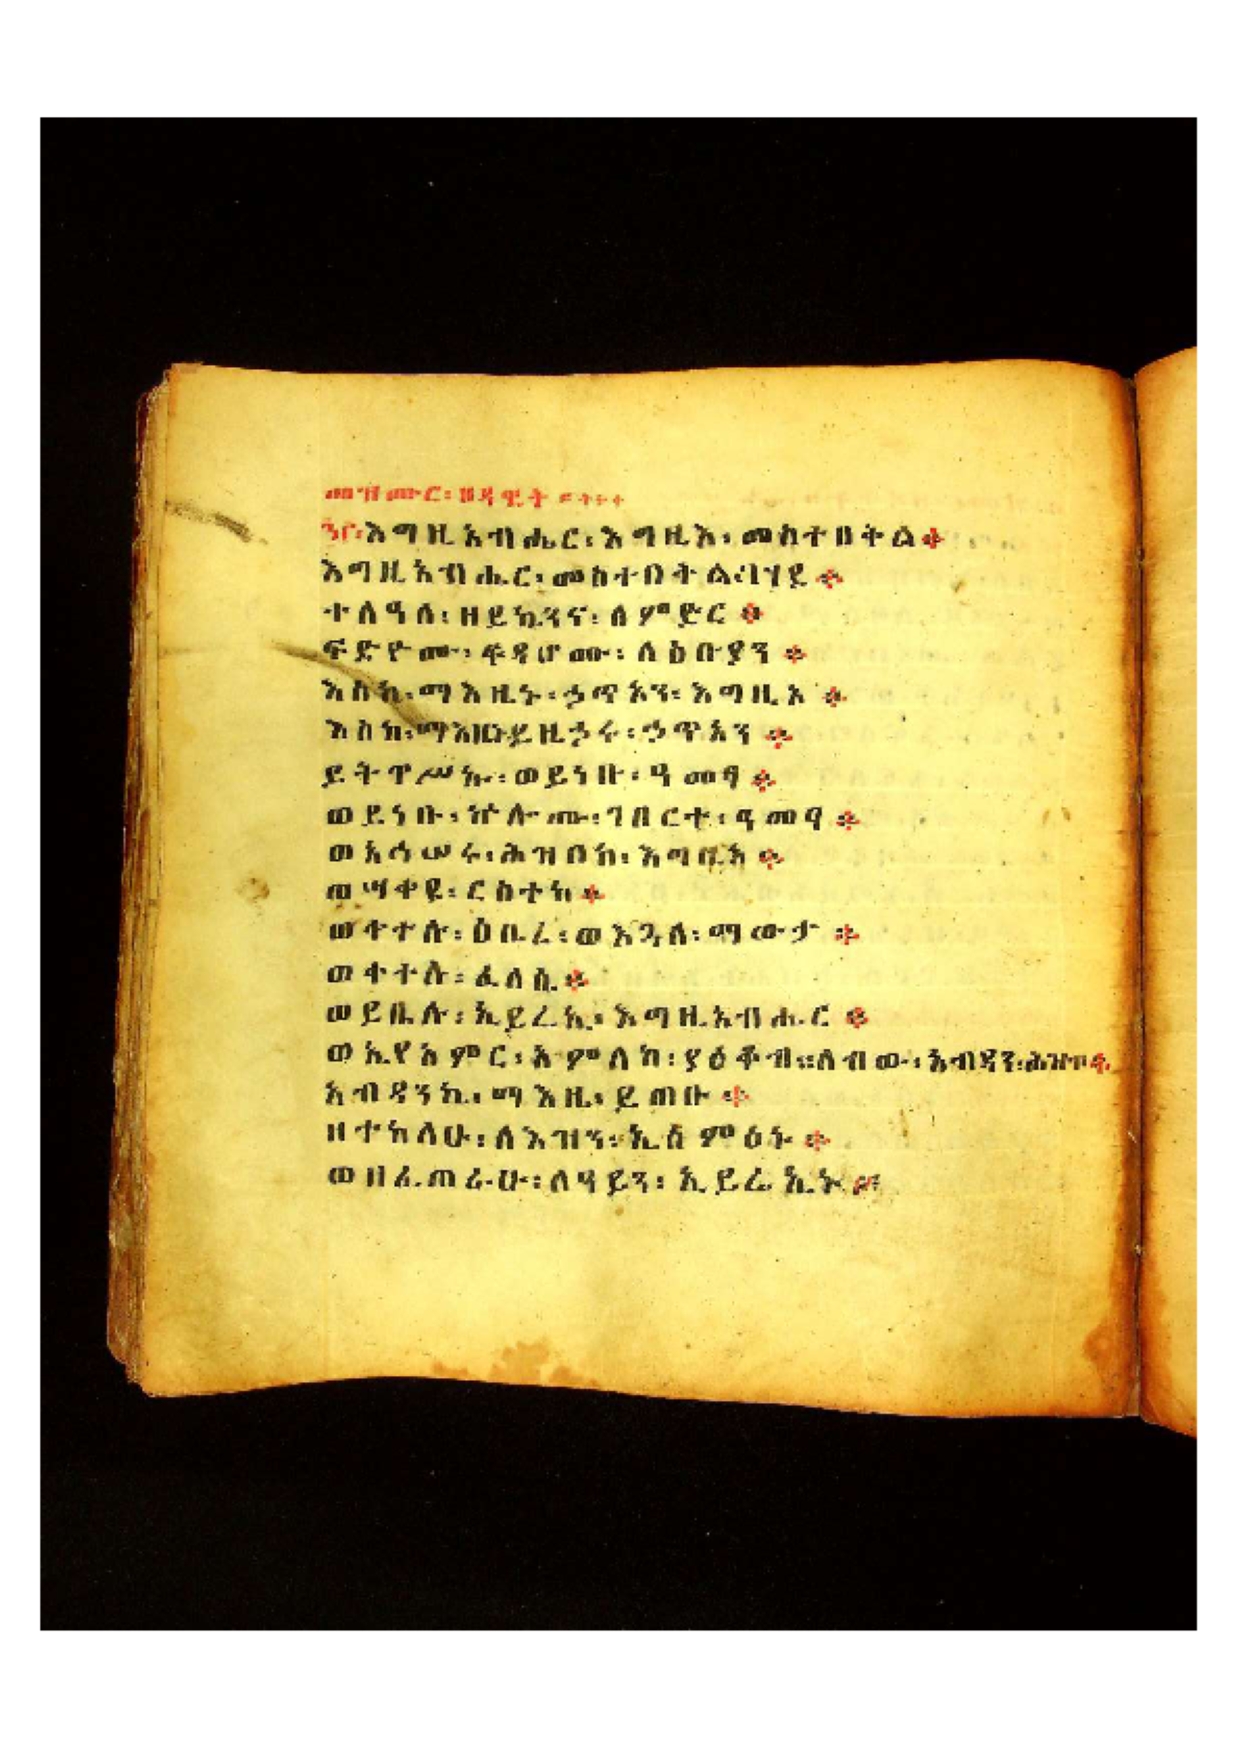 መዝሙር፡ ዘዳዊት
እግዚአብሔር፡ እግዚእ፡ መስተበትል፨
እግዚአብሔር፡ መስተበትል፡ ባሃዩ፨
ተለዓለ፡ ዘይኴንና፡ ለምድር፨
ፍድዮሙ፡ ፍዳሆሙ፡ ለዕቡያን፨
እስከ፡ ማእዜኑ፡ ኃጥአን፡ እግዚኦ፨
እስከ፡ ማእዜኑ፡ ይዜኃሩ፡ ኃጥአን፨
ይትዋሥኡ፡ ወይነቡ፡ ዓመፃ፨
ወይነቡ፡ ኵሎሙ፡ ገበርተ፡ ዓመፃ፨
ወአኅሠሩ፡ ሕዝበከ፡ እግዚኦ፨
ወሣቀዩ፡ ርስተከ፨
ወቀተሉ፡ ዕቤረ፡ ወእጓለ፡ ማውታ፨
ወቀተሉ፡ ፈላሴ፨
ወይቤሉ፡ ኢይሬኢ፡ እግዚአብሔር፨
ወኢየአምር፡ አምላከ፡ ያዕቆብ። ለብው፡ አብዳን፡ ሕዝብ፨
አብዳንኪ፡ ማእዜ፡ ይጠቡ፨
ዘተከለሁ፡ ለእዝን፡ ኢሰምዕኑ፨
ወዘፈጠራሁ፡ ለዓይን፡ ኢይሬኢኑ፨